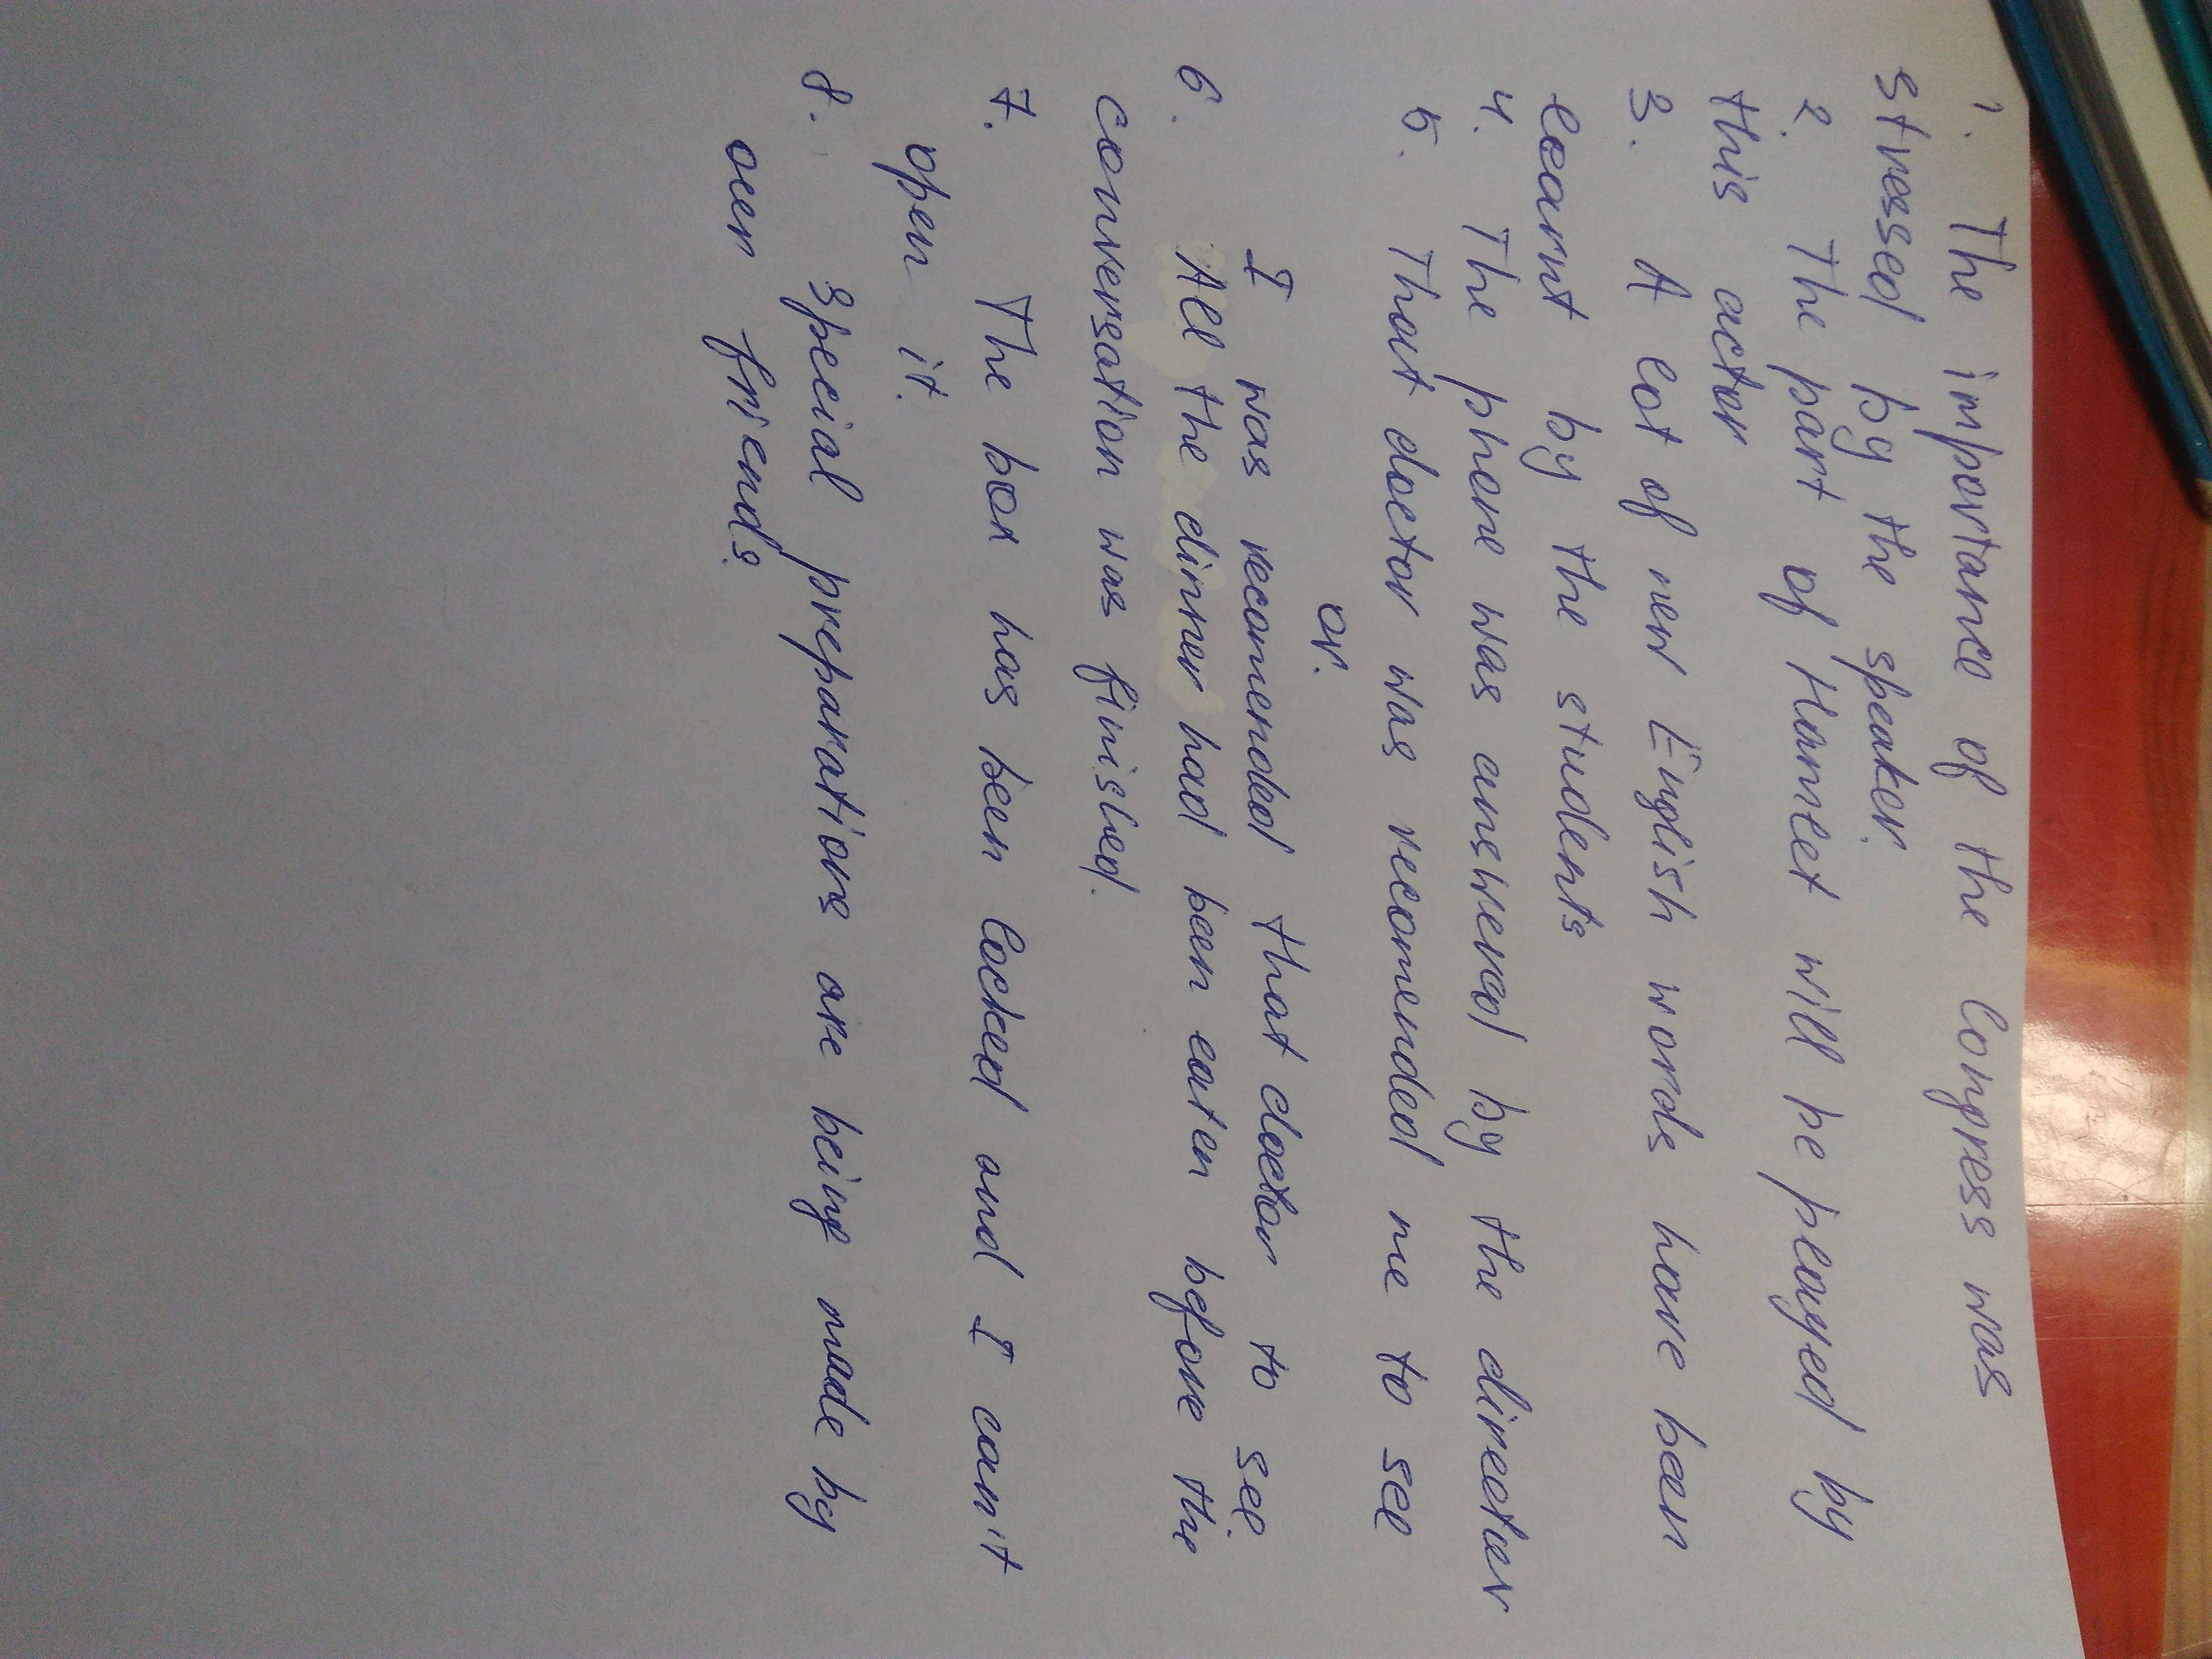 1. The importance of the Congress was
stressed by the speaker.
2. The part of Hamlet will be played by
this actor
3. A lot of new English words have been
learnt by the students
4. The phone was answered by the director
5. That doctor was recomended me to see
or.
I was recomended that doctor to see.
6. All the dinner had been eaten before the
conversation was finished.
7. The box has been locked and I can't
open it.
8. Special preparations are being made by
our friends.